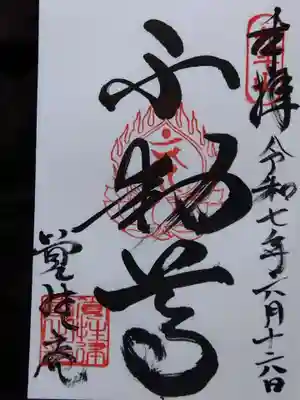 奉拝
令和七年六月十六日
不動尊
覚林庵